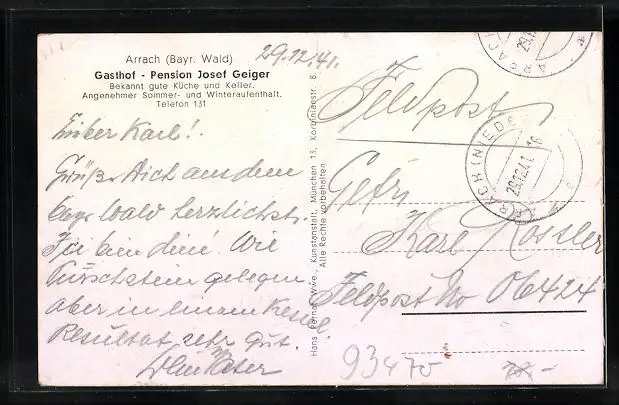 Arrach (Bayr. Wald)
Gasthof - Pension Josef Geiger
Bekannt gute Küche und Keller.
Angenehmer Sommer- und Winteraufenthalt.
Telefon 131
29.12.41.
Lieber Karl!
Grüße Dich aus dem
bayr Wald herzlichst.
Ich bin hier. Wie
gelegen
aber in einem Kessel.
Resultat sehr gut.
Dein Vater
Hans Pernat Wwe., Kunstanstalt, München 13, Korbinianstr. 8.
Alle Rechte vorbehalten.
Feldpost
Gefr.
Karl Rossler
Feldpost No 06424
93470
ARRACH
29.12
ARRACH (NIEDER
29.12.41 16